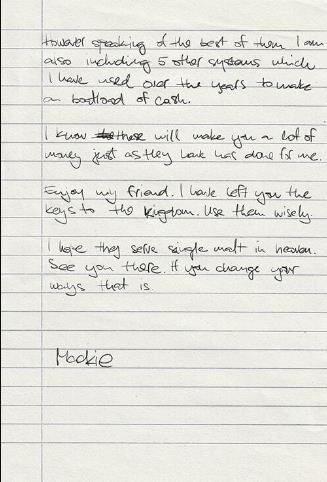 However speaking of the best of them I am
also including 5 other systems which
I have used over the years to make
a boatload of cash.
I know these will make you a lot of
money just as they have has done for me.
Enjoy my friend. I have left you the
keys to the kingdom. Use them wisely.
I hope they serve single malt in heaven.
See you there. If you change your
ways that is
Mookie